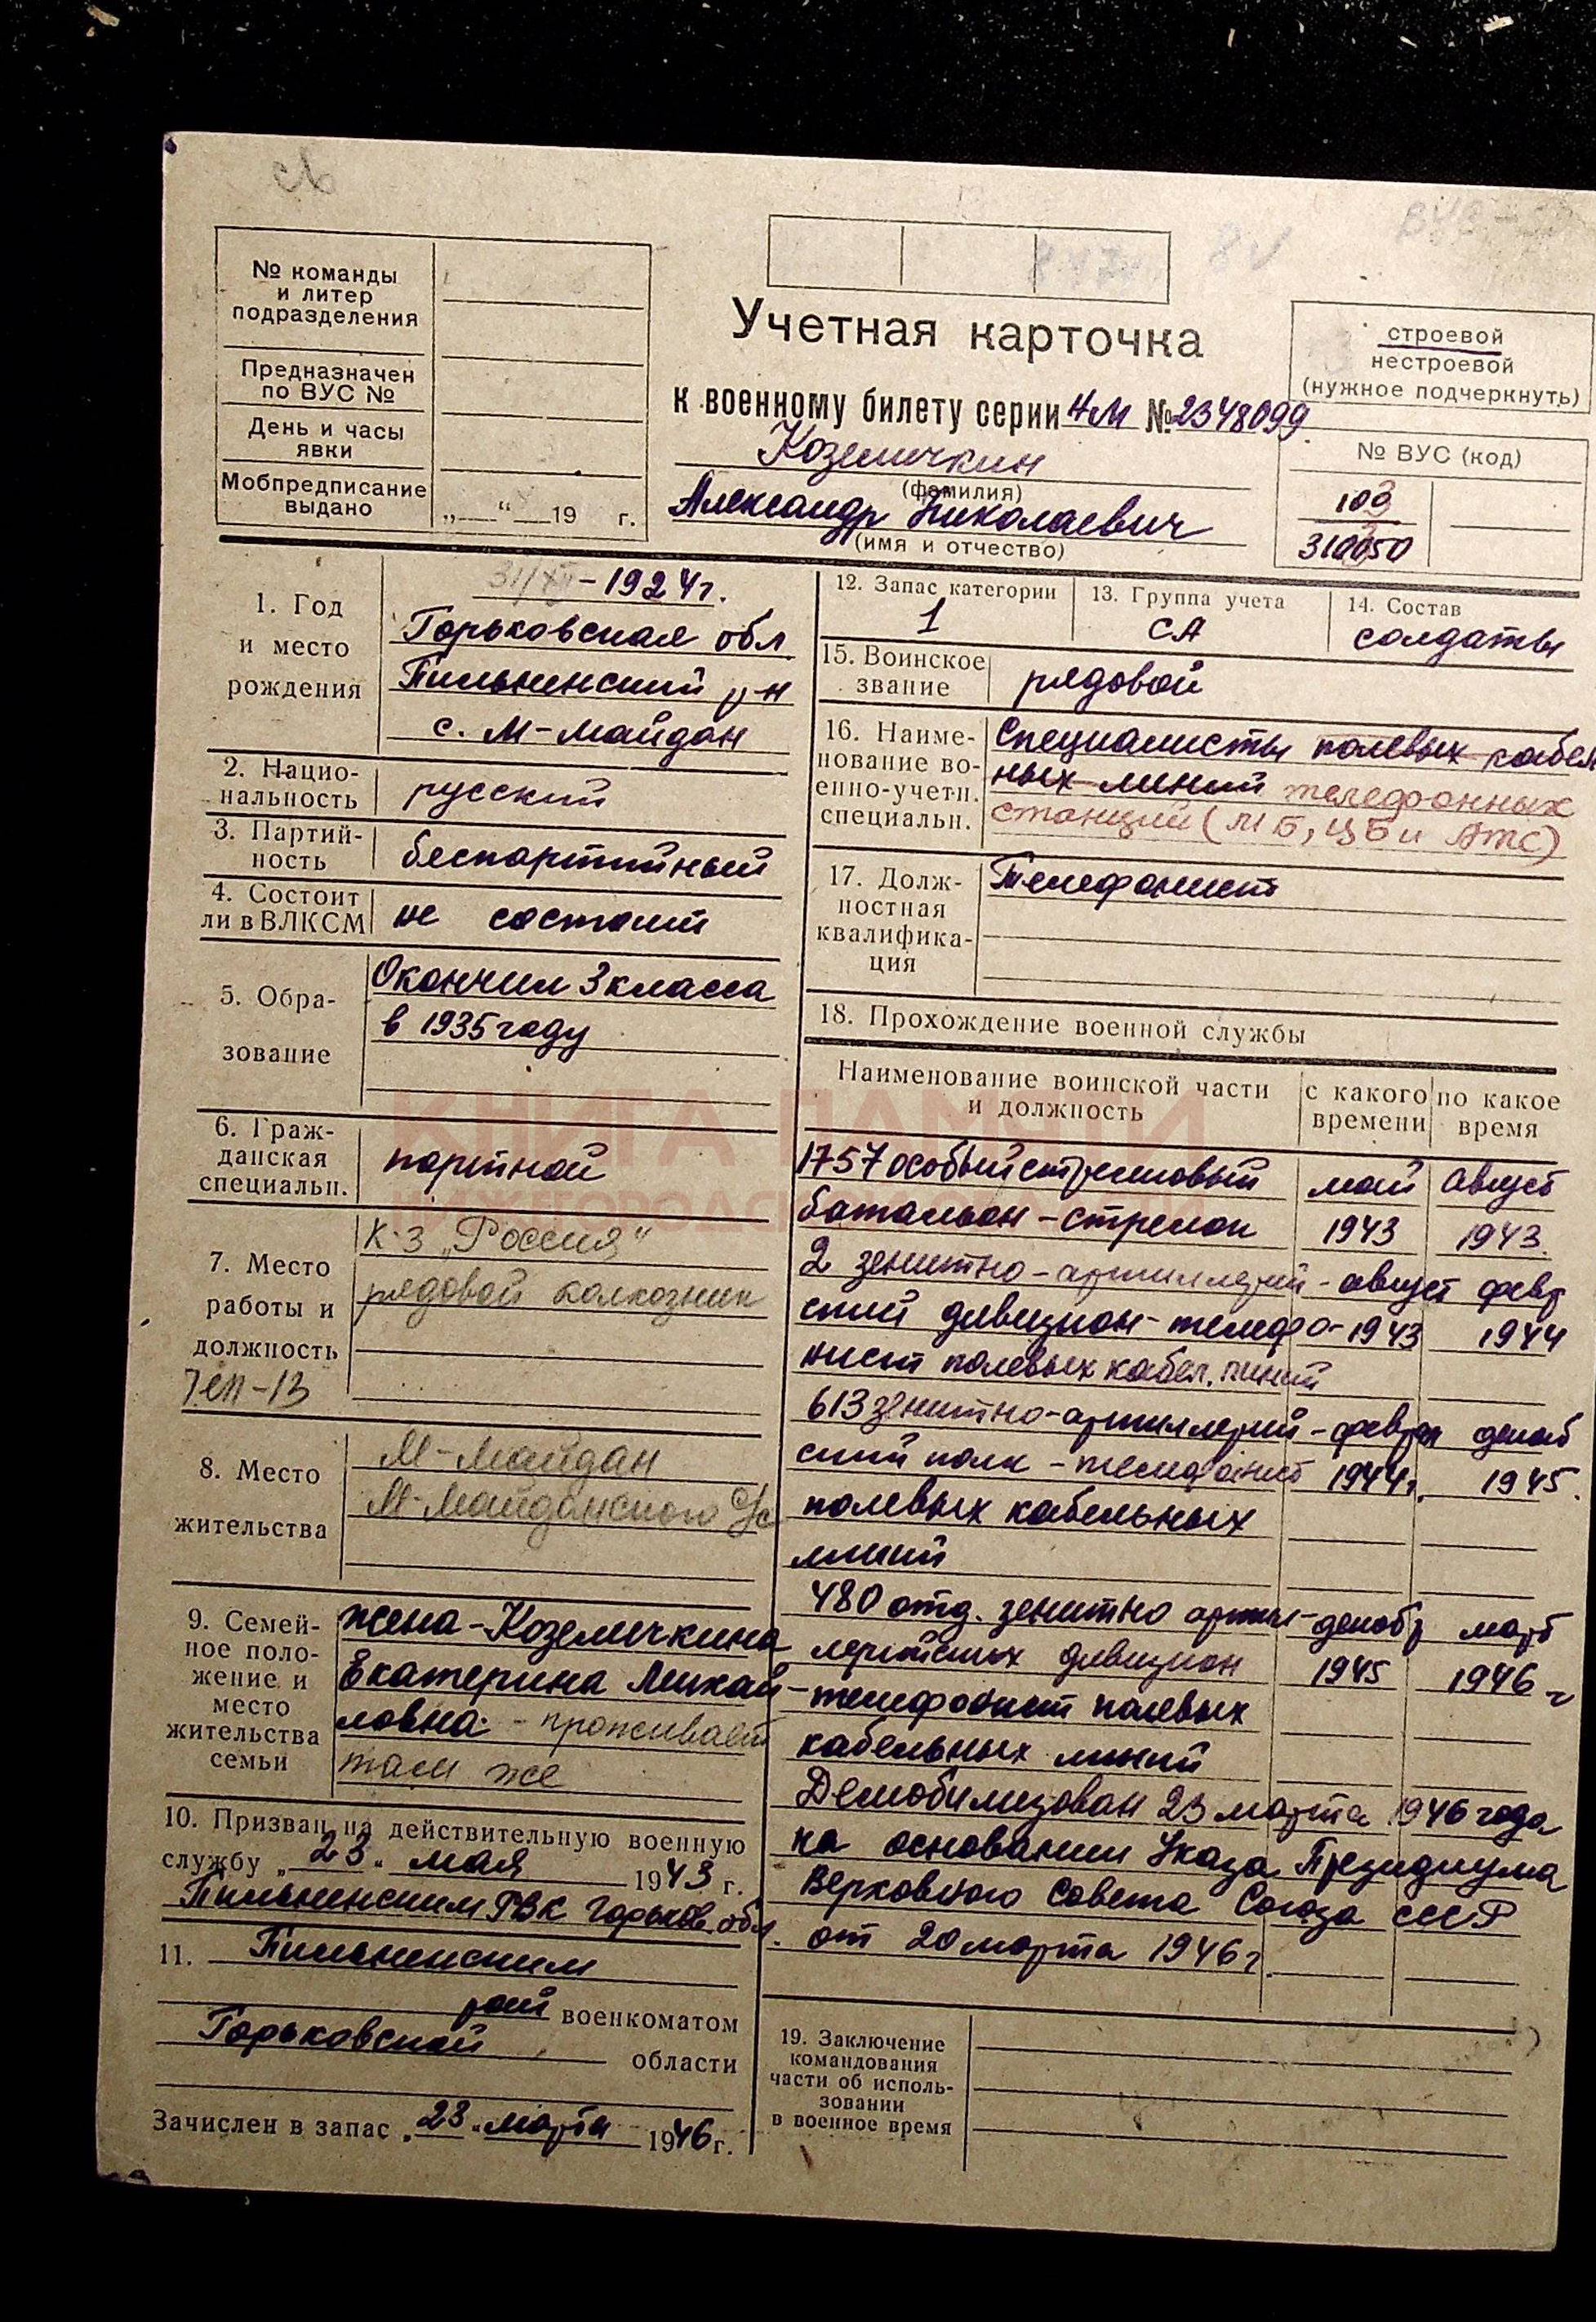 № команды
и литер
подразделения
Предназначен
по ВУС №
День и часы
явки
Мобпредписание
выдано
„ “ 19 г.
Учетная карточка
к военному билету серии НМ № 2348099
Коземичкин
(фамилия)
Александр Николаевич
(имя и отчество)
строевой
нестроевой
(нужное подчеркнуть)
№ ВУС (код)
109
1. Год
и место
рождения
31/XII - 1924 г.
Горьковская обл
Пильненский р-н
с. М-Майдан
2. Нацио-
нальность
русский
3. Партий-
ность
беспартийный
4. Состоит
ли в ВЛКСМ
не состоит
5. Обра-
зование
Окончил 3 класса
в 1935 году
6. Граж-
данская
специальн.
портной
7. Место
работы и
должность
к-з „Россия“
рядовой колхозник
8. Место
жительства
М-Майдан
М-Майданского с/с
9. Семей-
ное поло-
жение и
место
жительства
семьи
жена - Коземичкина
Екатерина Михай-
ловна - проживает
там же
10. Призван на действительную военную
службу „23“ мая 1943 г.
Пильненским РВК Горьков. обл.
11. Пильненским
рай военкоматом
Горьковской области
Зачислен в запас „23“ марта 1946 г.
12. Запас категории
1
13. Группа учета
СА
14. Состав
солдаты
15. Воинское
звание
рядовой
16. Наиме-
нование во-
енно-учетн.
специальн.
Специалисты полевых кабель
ных линий телефонных
станций (МБ, ЦБ и АТС)
17. Долж-
ностная
квалифика-
ция
Телефонист
18. Прохождение военной службы
Наименование воинской части
и должность
с какого
времени
по какое
время
1757 особый стрелковый май август
батальон - стрелок 1943 1943.
2 зенитно-артиллерий- август февр
ский дивизион - телефо- 1943 1944
нист полевых кабел. линий
613 зенитно-артиллерий- феврал декаб
ский полк - телефонист 1944 г. 1945.
полевых кабельных
линий
480 отд. зенитно артил- декабр март
лерийских дивизион 1945 1946 г
- телефонист полевых
кабельных линий
Демобилизован 23 марта 1946 года
на основании Указа Президиума
Верховного Совета Союза СССР
от 20 марта 1946 г.
19. Заключение
командования
части об исполь-
зовании
в военное время
КНИГА ПАМЯТИ